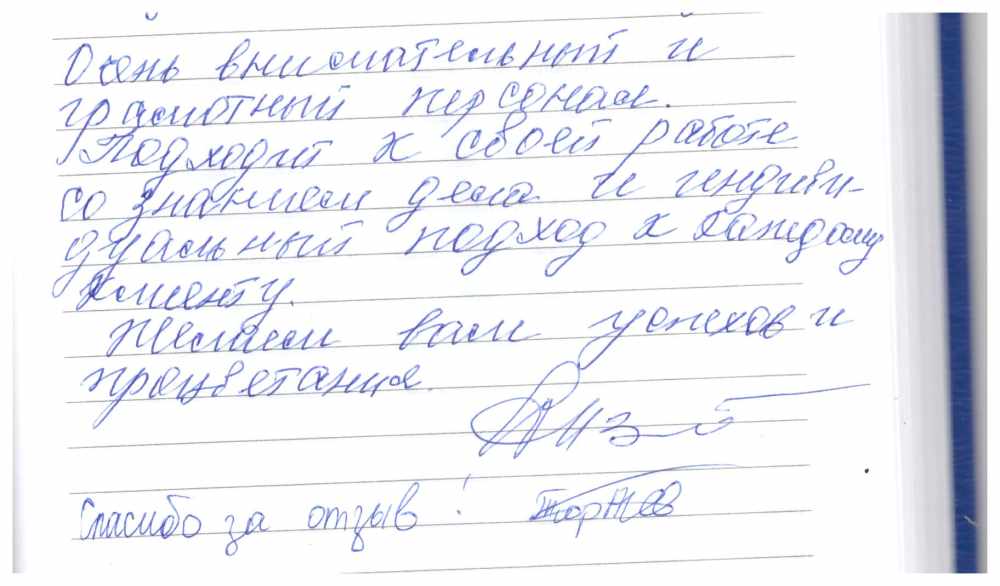 Очень внимательный и
грамотный персонал.
Подходит к своей работе
со знанием дела и индиви-
дуальный подход к каждому
клиенту.
Желаем вам успехов и
процветания.
Спасибо за отзыв!